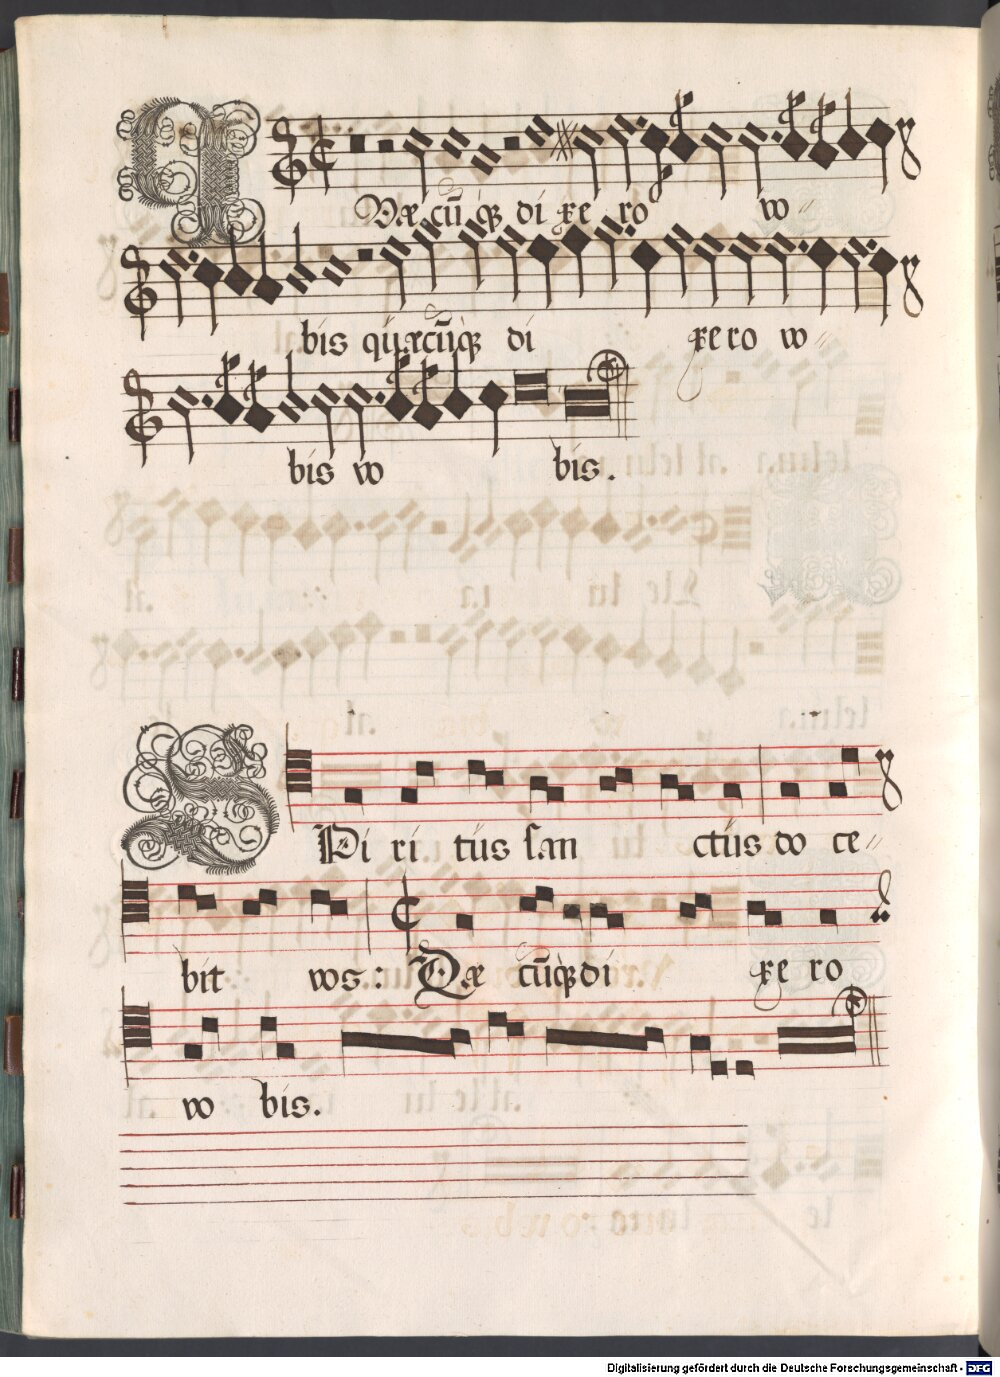 Quæ cūq́ꝫ di xe ro vo
bis quæcūq́ꝫ di xe ro vo
bis vo bis.
SPi ri tus san ctus do ce
bit vos: Quæ cūq́ꝫ di xe ro
vo bis.
Digitalisierung gefördert durch die Deutsche Forschungsgemeinschaft - DFG